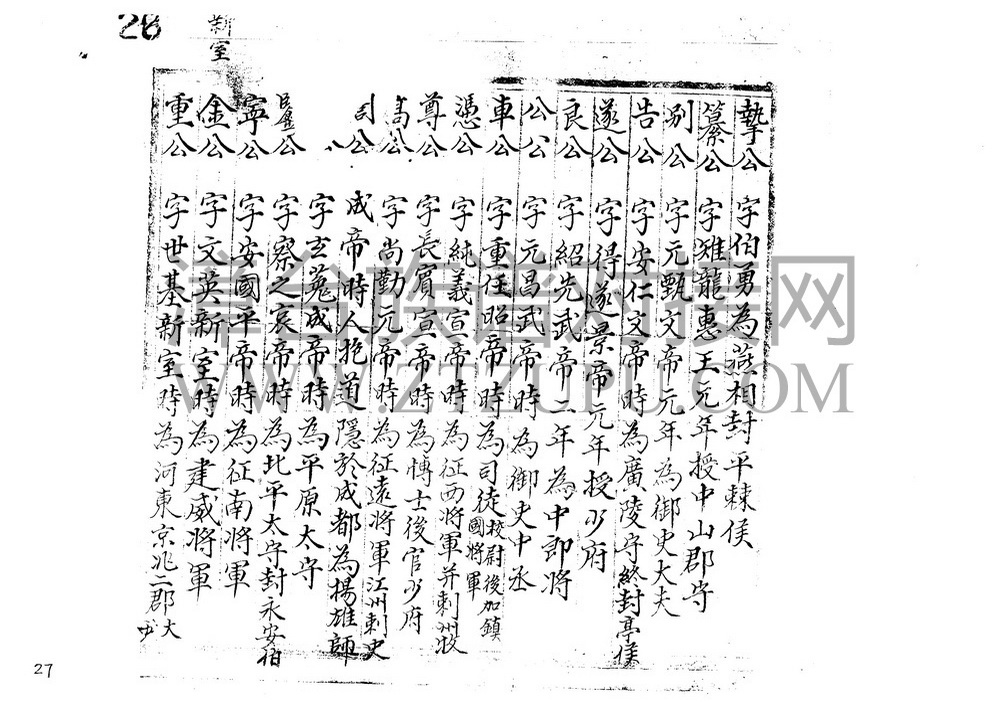 28
新室
摯公 字伯勇為燕相封平棘侯
纂公 字雉龍惠王元年授中山郡守
別公 字元甄文帝元年為御史大夫
告公 字安仁文帝時為廣陵守終封亭侯
遂公 字得遂景帝元年授少府
良公 字紹先武帝二年為中郎將
公公 字元昌武帝時為御史中丞
車公 字重任昭帝時為司徒校尉後加鎮國將軍
憑公 字純義宣帝時為征西將軍并刺洲牧
尊公 字長賓宣帝時為博士後官少府
公 字尚勤元帝時為征遠將軍江州刺史
司公 成帝時人抱道隱於成都為揚雄師
字玄菟成帝時為平原太守
公 字察之哀帝時為北平太守封永安伯
寧公 字安國平帝時為征南將軍
金公 字文英新室時為建威將軍
重公 字世基新室時為河東京兆二郡大守
27